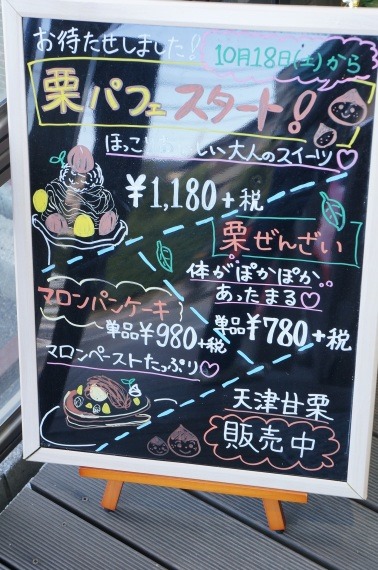 お待たせしました!
10月18日(土)から
栗パフェスタート!
ほっこりおいしい大人のスイーツ♡
¥1,180+税
栗ぜんざい
体がぽかぽか
あったまる♡
単品¥780+税
マロンパンケーキ
単品¥980+税
マロンペーストたっぷり♡
天津甘栗
販売中